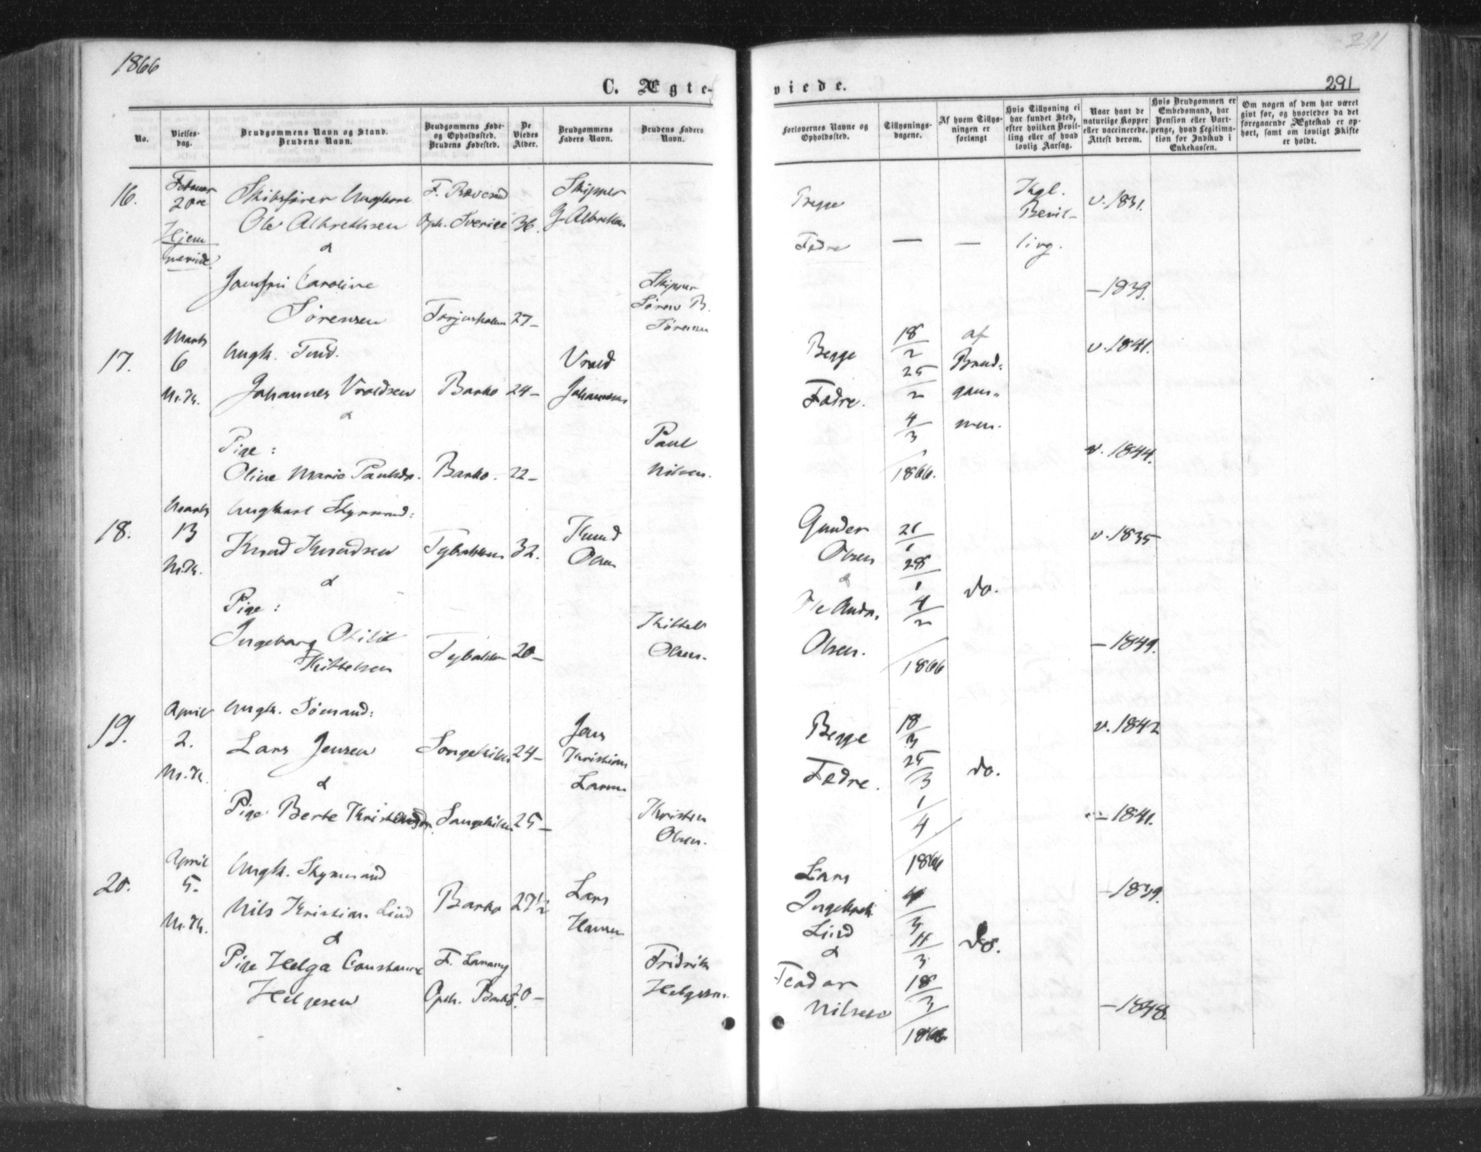 1866
C. Ægte-
viede.
291
291
No.
Vielses-
dag.
Brudgommens Navn og Stand.
Brudens Navn.
Brudgommens Føde-
og Opholdssted.
Brudens Fødested.
De
Viedes
Alder.
Brudgommens
Faders Navn.
Brudens Faders
Navn.
Forlovernes Navne og
Opholdssted.
Tillysnings-
dagene.
Af hvem Tillys-
ningen er
forlangt
Hvis Tillysning ei
har fundet Sted,
efter hvilken Bevil-
ling eller af hvad
lovlig Aarsag.
Naar havt de
naturlige Kopper
eller vaccinerede.
Attest derom.
Hvis Brudgommen er
Embedsmand, har
Pension eller Vart-
penge, hvad Legitima-
tion for Indskud i
Enkekassen.
Om nogen af dem har været
givt før, og hvorledes da det
foregaaende Ægteskab er op-
hørt, samt om lovligt Skifte
er holdt.
16.
Februar
20de
Hjem
Skibsfører Ungkarl
Ole Albrethsen
&
Jomfru Caroline
Sørensen
Oph. Sverige 36.
27-
Skipper
Skipper
Søren B.
Begge
Fædre
Kgl.
Bevil-
ling.
v. 1831.
- 1839.
17.
Marts
6
N. K.
Ungk. Tmd.
Johannes Vraldsen
&
Pige:
Oline Marie Paulsdr.
Barbo 24-
Barbo. 22-
Vrald
Johannesen
Paul
Nilsen.
Begge
Fædre.
18/2
25/2
4/3
1866.
af
Brud-
gom-
men.
v. 1841.
v. 1844.
18.
Marts
13
N. K.
Ungkarl Styrmand:
Knud Knudsen
&
Pige:
Ingeborg Otilie
Kittelsen
32.
20-
Knud
Olsen
Kittel
Olsen.
Gunder
Olsen
&
Ole Andr.
Olsen.
21/1
28/1
4/2
1866
do.
v. 1835
- 1849.
19.
April
2.
N. K.
Ungk. Sømand:
Lars Jensen
&
Pige Berte Kristensdr.
Songekilen 24-
Songekilen 25-
Jens
Kristian
Larsen
Kristen
Olsen.
Begge
Fædre.
18/3
25/3
1/4
1866
do.
v. 1842
- 1841.
20.
April
5.
N. K.
Ungk. Styrmand
Nils Kristian Lind
&
Pige Helga Constance
Helgesen
Barbo 27½
Oph. Barbo 20-
Lars
Hansen
Fridrik
Helgesen.
Lars
Lind
&
Teodor
Nilsen
4/3
11/3
18/3
1866
do.
- 1839.
- 1848.